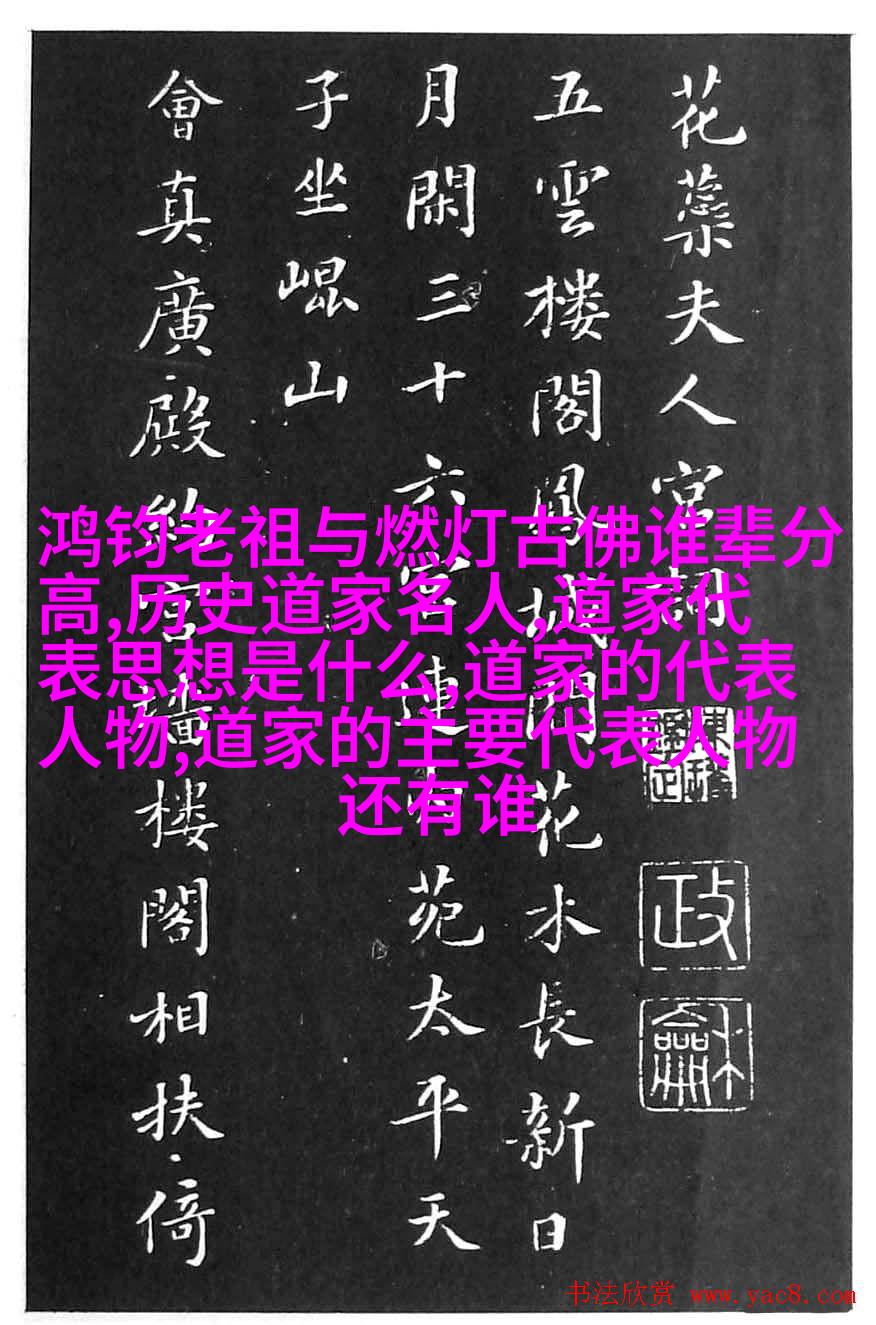 花蘂夫人宮詞
五雲楼閣鳳城間花水長新日
月閑三十六宮連内苑太平天
子坐崐山
會真廣殿約宮墻楼閣相扶倚
政龢
鸿钧老祖与燃灯古佛谁辈分
高,历史道家名人,道家代
表思想是什么,道家的代表
人物,道家的主要代表人物
还有谁
书法欣赏 www.yac8.com